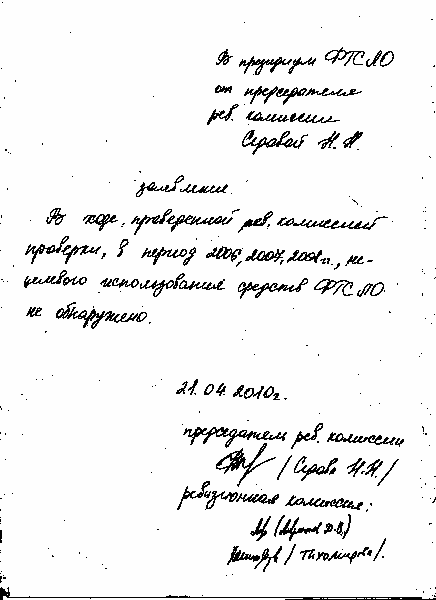 В президиум ФТСЛО
от председателя
рев. комиссии
Серовой Н. Н.
заявление.
В ходе, проведенной рев. комиссией
проверки, в период 2006, 2007, 2008 г., не-
целевого использования средств ФТСЛО
не обнаружено.
21.04.2010г.
председатель рев. комиссии
/ Серова Н.Н. /
ревизионная комиссия:
/ Тихомирова /.